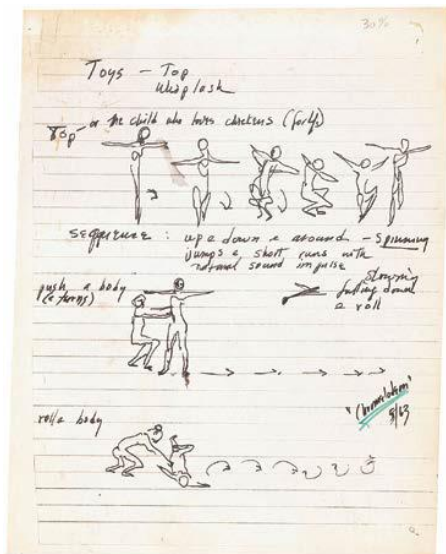 30%
Toys - Top
Whiplash
Top - or the child who loves chickens (for life)
sequence : up e down e around - spinning
jumps e short runs with
normal sound impulse
push a body
(e turns)
slowing
falling down
e roll
5/63
roll a body